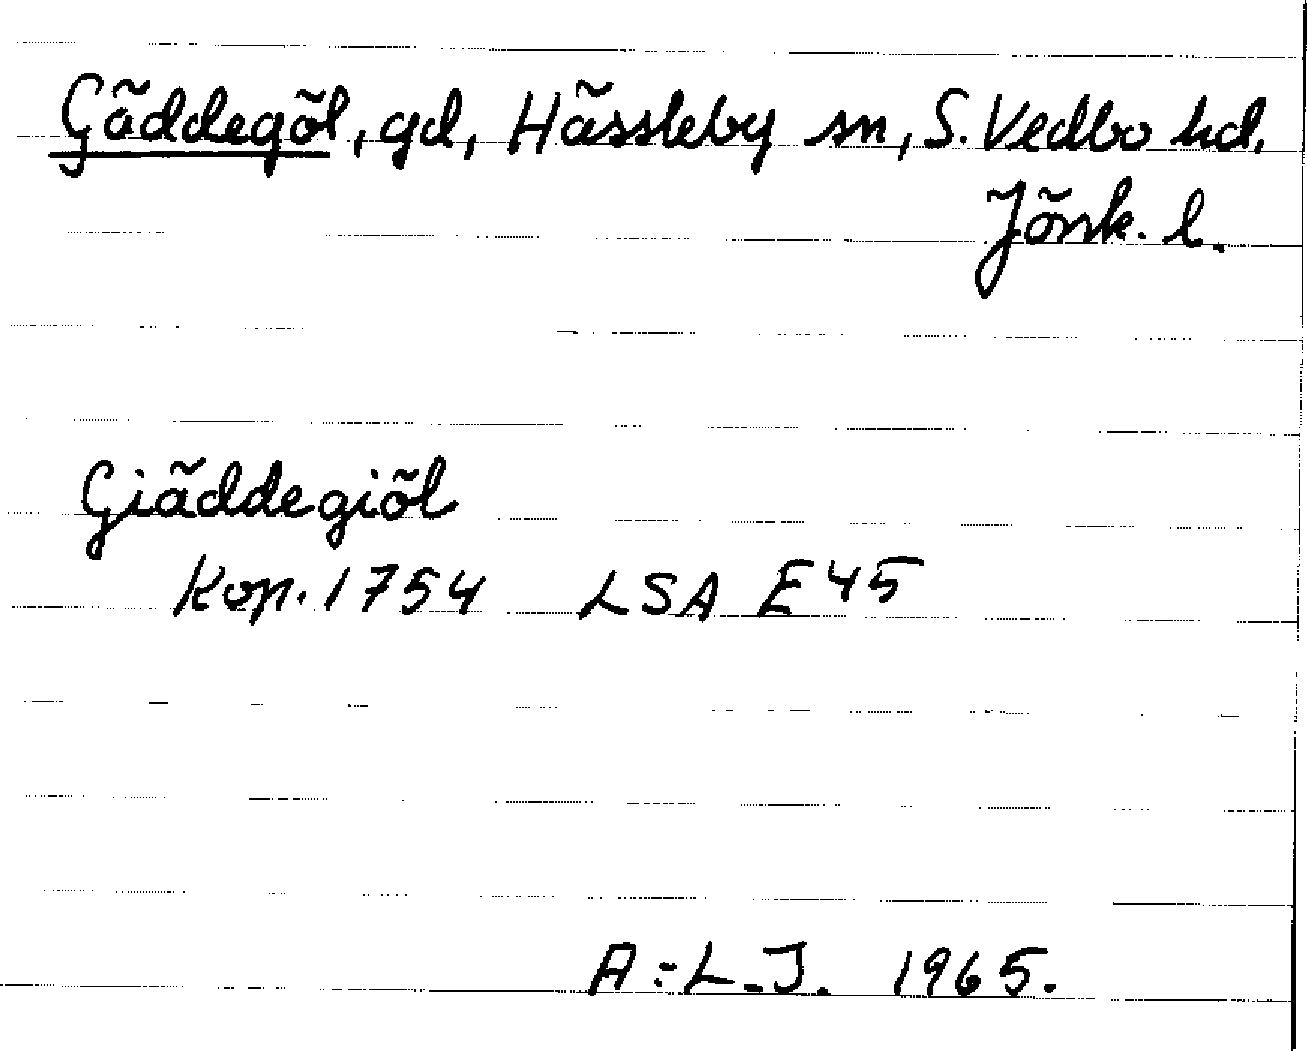 Gäddegöl, gd, Hässleby sn, S. Vedbo hd.
Jönk. l.
Giäddegiöl
Kop. 1754 LSA E45
A:L.J. 1965.